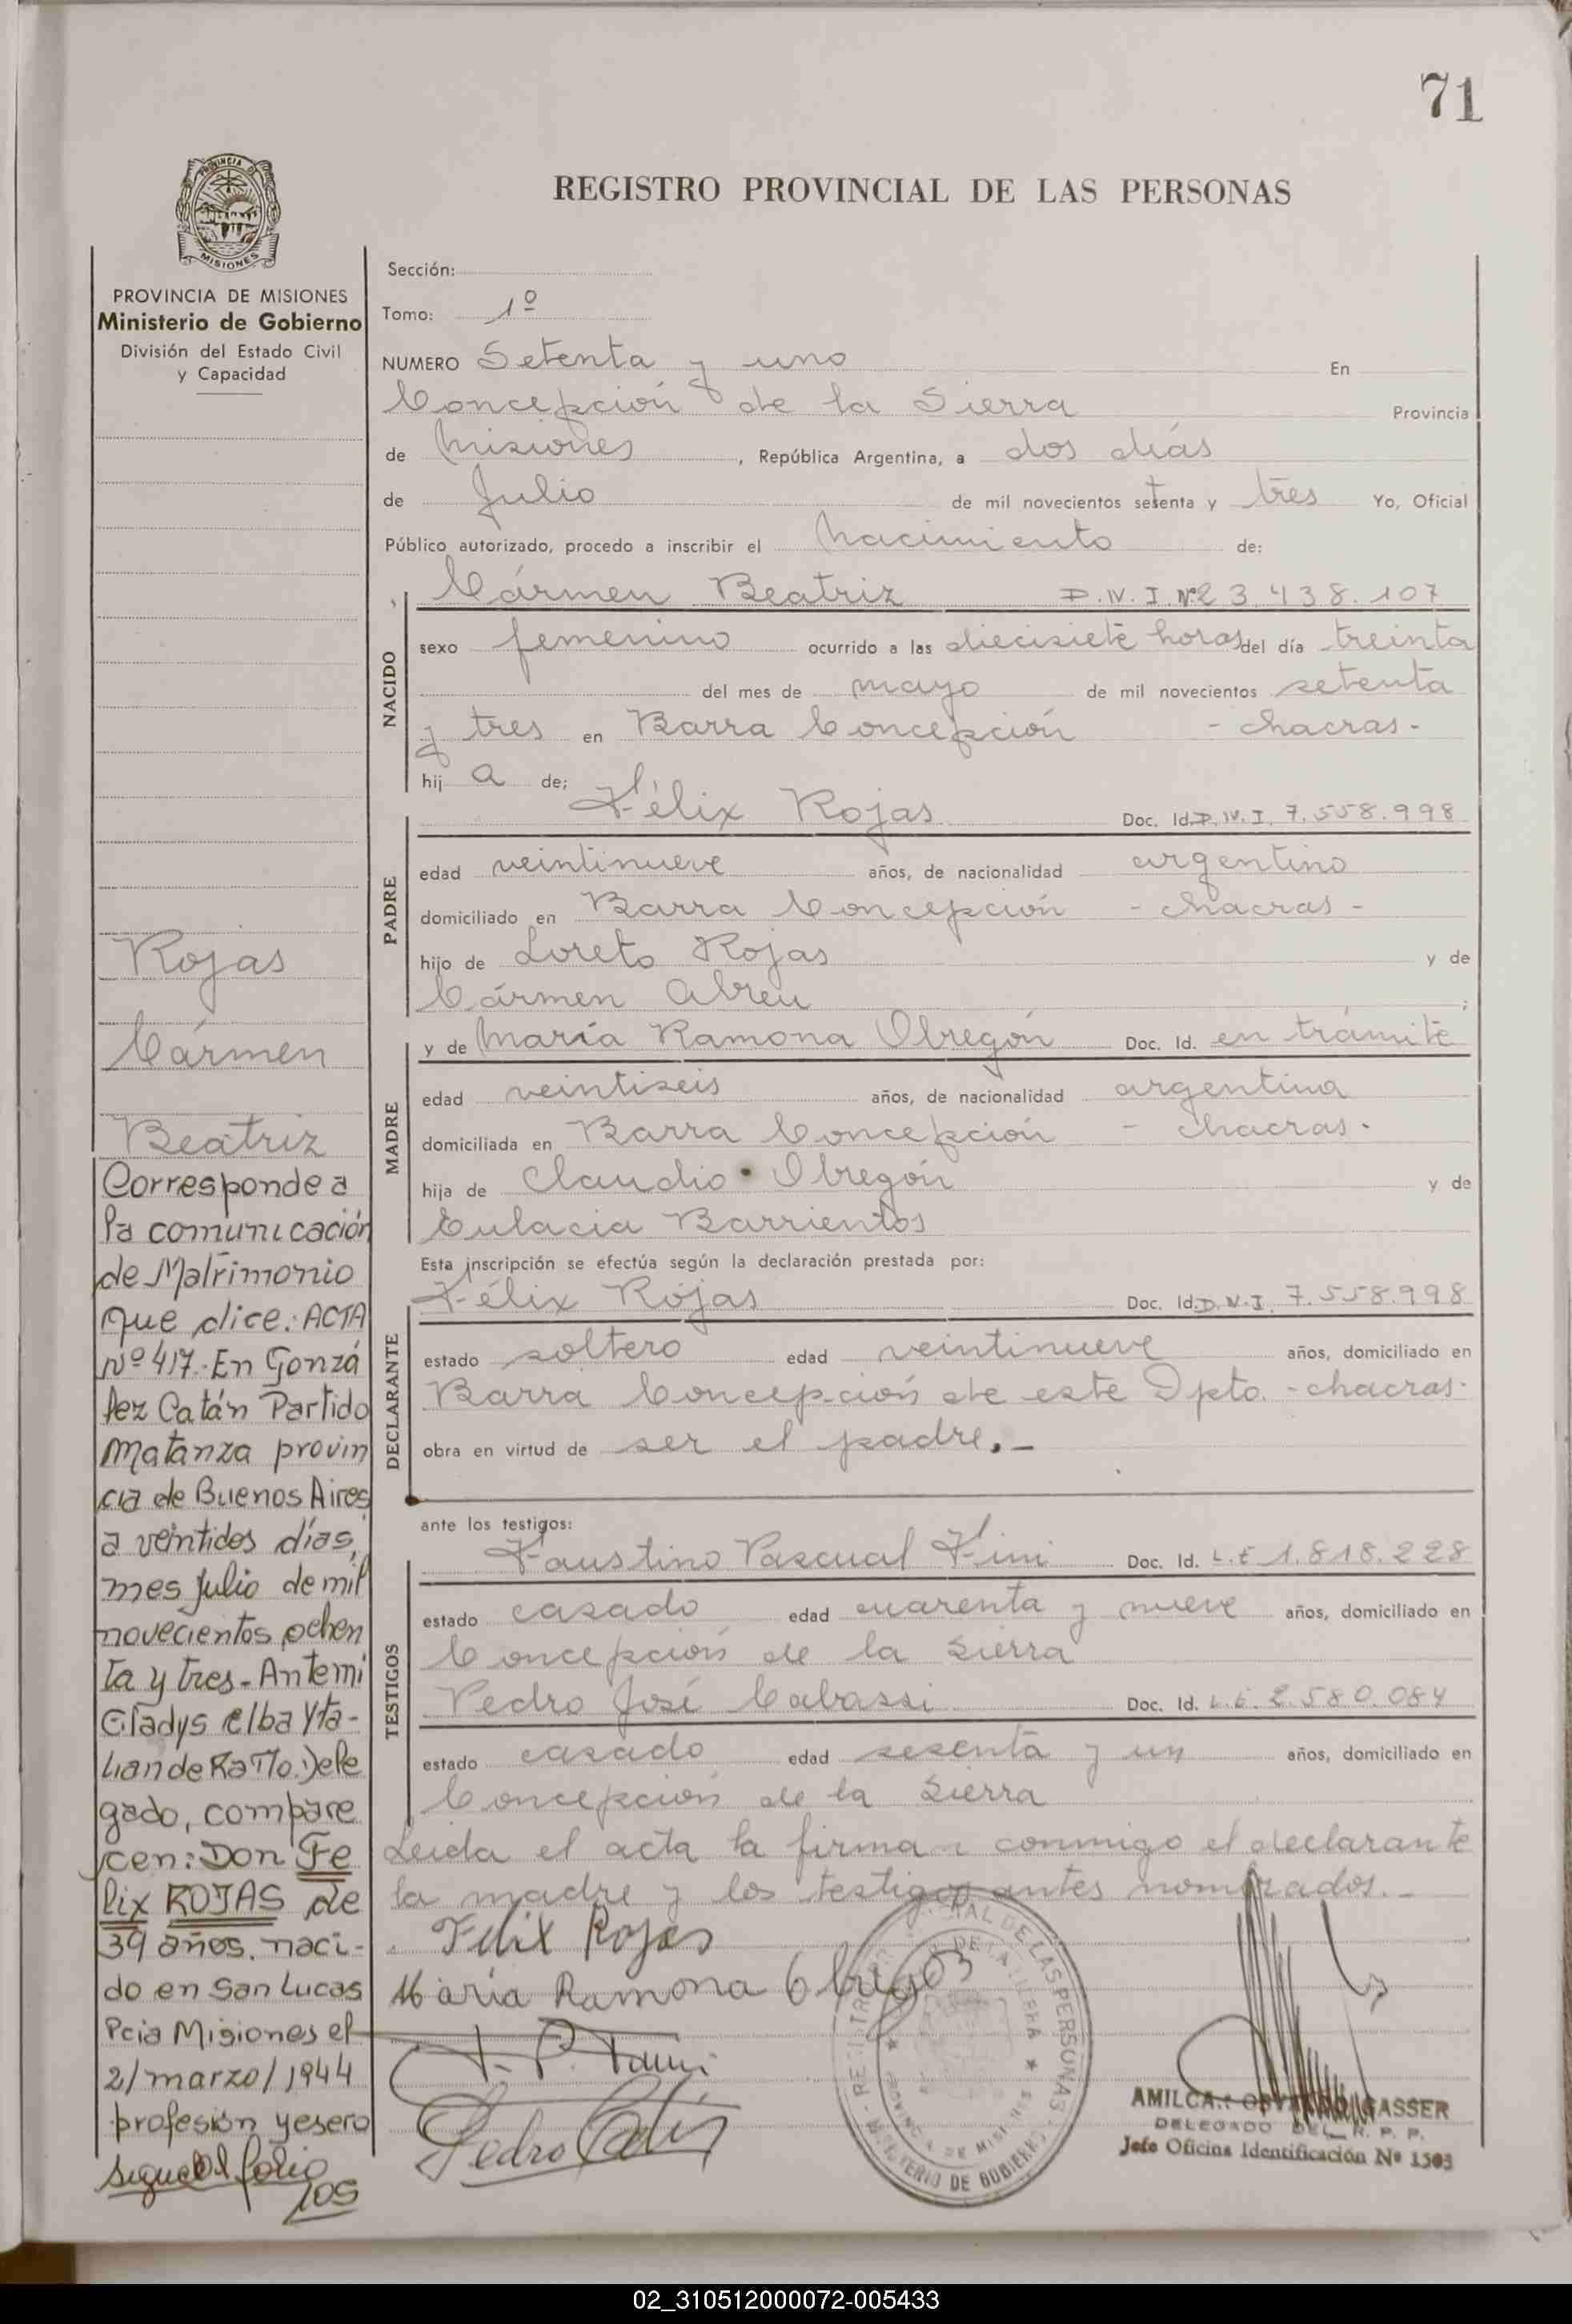 71
REGISTRO PROVINCIAL DE LAS PERSONAS
PROVINCIA DE
MISIONES
PROVINCIA DE MISIONES
Ministerio de Gobierno
División del Estado Civil
y Capacidad
Sección:
Tomo: 1º
NUMERO Setenta y uno En
Concepción de la Sierra Provincia
de Misiones, República Argentina, a dos días
de Julio de mil novecientos setenta y tres Yo, Oficial
Público autorizado, procedo a inscribir el Nacimiento de:
NACIDO
Cármen Beatriz D.N.I. Nº 23.438.107
sexo femenino ocurrido a las diecisiete horas del día treinta
del mes de mayo de mil novecientos setenta
y tres en Barra Concepción - chacras -
hij a de;
PADRE
Félix Rojas Doc. Id. D.N.I. 7.558.998
edad veintinueve años, de nacionalidad argentino
domiciliado en Barra Concepción - chacras -
hijo de Loreto Rojas y de
Cármen Abreu ;
MADRE
y de María Ramona Obregón Doc. Id. en trámite
edad veintiseis años, de nacionalidad argentina
domiciliada en Barra Concepción - chacras -
hija de Claudio Obregón y de
Eulacia Barrientos
Esta inscripción se efectúa según la declaración prestada por:
DECLARANTE
Félix Rojas Doc. Id. D.N.I. 7.558.998
estado soltero edad veintinueve años, domiciliado en
Barra Concepción de este Dpto. - chacras -
obra en virtud de ser el padre. -
ante los testigos:
TESTIGOS
Faustino Pascual Fini Doc. Id. L.E 1.818.228
estado casado edad cuarenta y nueve años, domiciliado en
Concepción de la Sierra
Pedro José Cabassi Doc. Id. L.E. 2.580.084
estado casado edad sesenta y un años, domiciliado en
Concepción de la Sierra
Leida el acta la firman conmigo el declarante
la madre y los testigos antes nombrados. -
Felix Rojas
María Ramona Obregon
Pedro
DE LAS PERSONAS
PROVINCIA DE MISIONES
MINISTERIO DE GOBIERNO
GASSER
DELEGADO DEL R. P. P.
Jefe Oficina Identificación Nº 1503
Rojas
Cármen
Beatriz
Corresponde a
la comunicación
de Matrimonio
que dice: ACTA
Nº 417. En Gonzá
lez Catán Partido
Matanza provin
cia de Buenos Aires
a veintidos días,
mes Julio de mil
novecientos ochen
ta y tres - Ante mi
Gladys Elba Yta-
lian de Ratto. Dele
gado, compare
cen: Don Fe
lix ROJAS de
39 años. naci-
do en San Lucas
Pcia Misiones el
2/marzo/1944
profesión yesero
sigue al folio
105
02_310512000072-005433